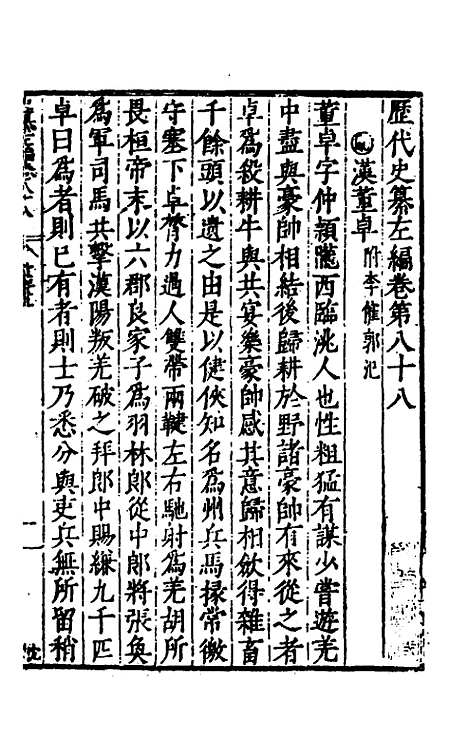 歷代史纂左編卷第八十八
漢董卓 附李傕郭汜
董卓字仲穎隴西臨洮人也性粗猛有謀少嘗遊羌
中盡與豪帥相結後歸耕於野諸豪帥有來從之者
卓爲殺耕牛與共宴樂豪帥感其意歸相斂得雜畜
千餘頭以遺之由是以健俠知名爲州兵馬掾常徼
守塞下卓膂力過人雙帶兩鞬左右馳射爲羌胡所
畏桓帝末以六郡良家子爲羽林郎從中郎將張奐
爲軍司馬共擊漢陽叛羌破之拜郎中賜縑九千匹
卓曰爲者則已有者則士乃悉分與吏兵無所留稍